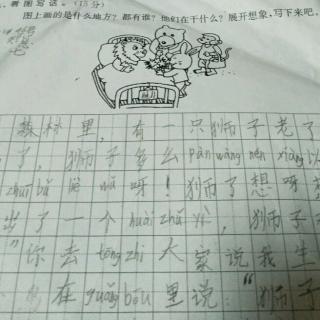 看图写话。(15分)
图上画的是什么地方?都有谁?他们在干什么?展开想象,写下来吧。
森林里,有一只狮子老了
了,狮子多么pàn wàng nén xiàng
zhǔn bǔ 呀!狮子想呀
出了一个huài zhǔ yì,狮子
"你去tōng zhī大家说我生
在guǎng bō里说:"狮子